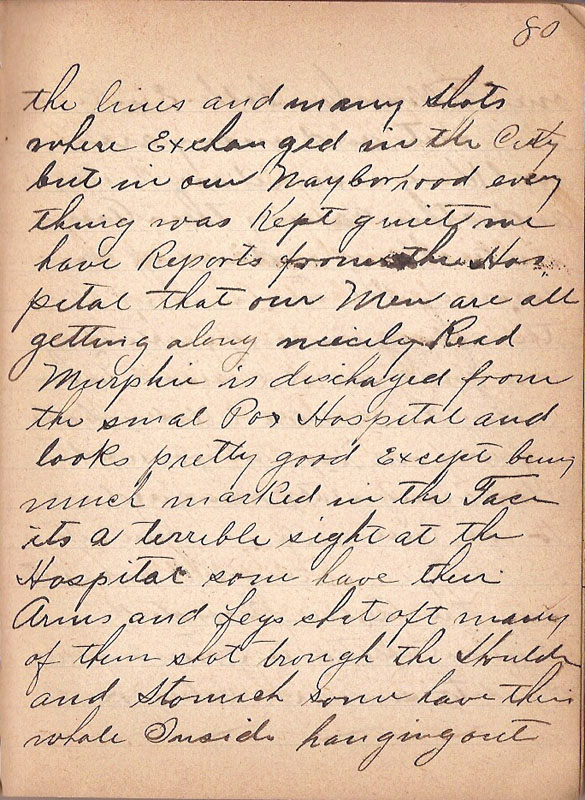 80
the lines and many shots
where Exchanged in the City
but in our Nayborhood every
thing was Kept quiet we
have Reports from the Hos
pital that our Men are all
getting along niecily Read
Murphie is dischaged from
the smal Pox Hospital and
looks pretty good Except being
much marked in the Face
its a terrible sight at the
Hospital some have their
Arms and Legs shot oft many
of them shot trough the Shoulder
and Stomach some have their
whole Inside hanging out